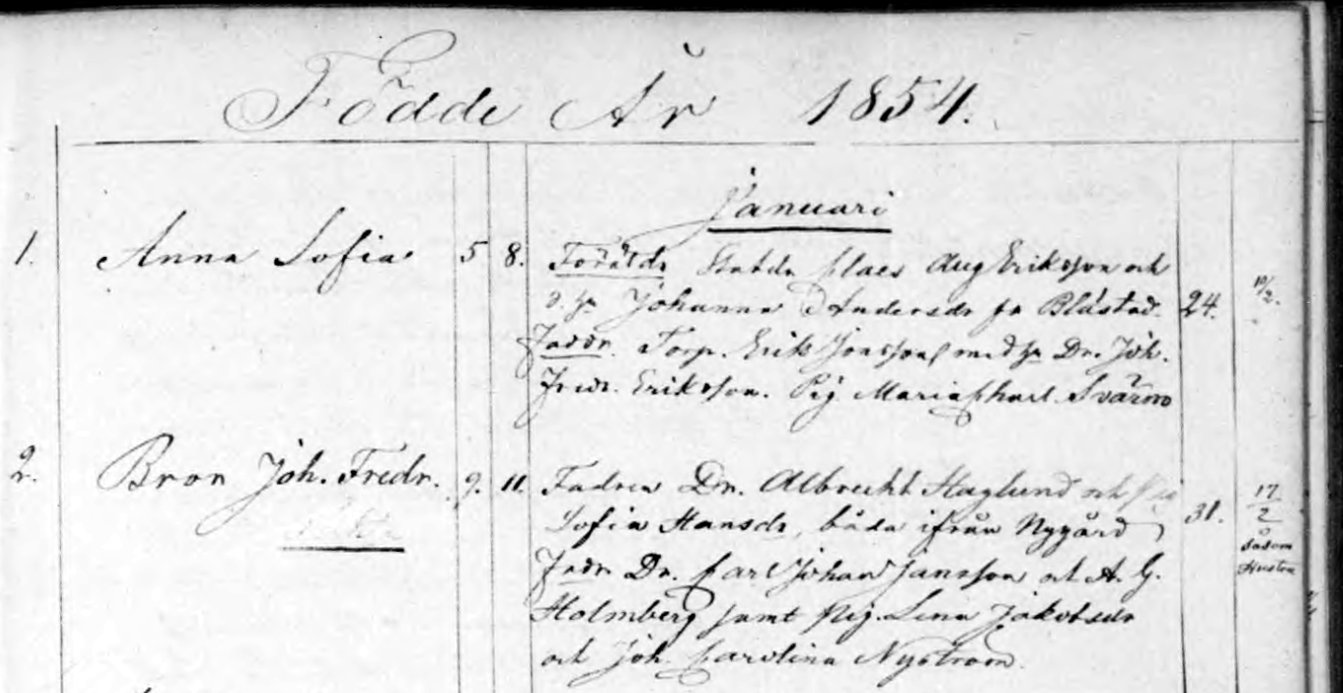 Födde År 1854.
Januari
1. Anna Sofia 5 8. Föräldr Statdr Claes Aug Eriksson och
h hu Johanna Andersdr fr Blåstad. 24. 10/2.
Faddr. Torp. Erik Jonsson med hu Dr. Joh.
Fredr. Eriksson. Pig Maria Charl. Svärm
2. Bror Joh. Fredr. 9. 11. Fadren Dr. Albrecht Haglund och
Sofia Hansdr, båda ifrån Nygård 31. 17/2
Faddr Dr. Carl Johan Jansson och A. G. såsom Hustru
Holmberg samt Pig. Lena Jakobsdr
och Joh. Carolina Nyström